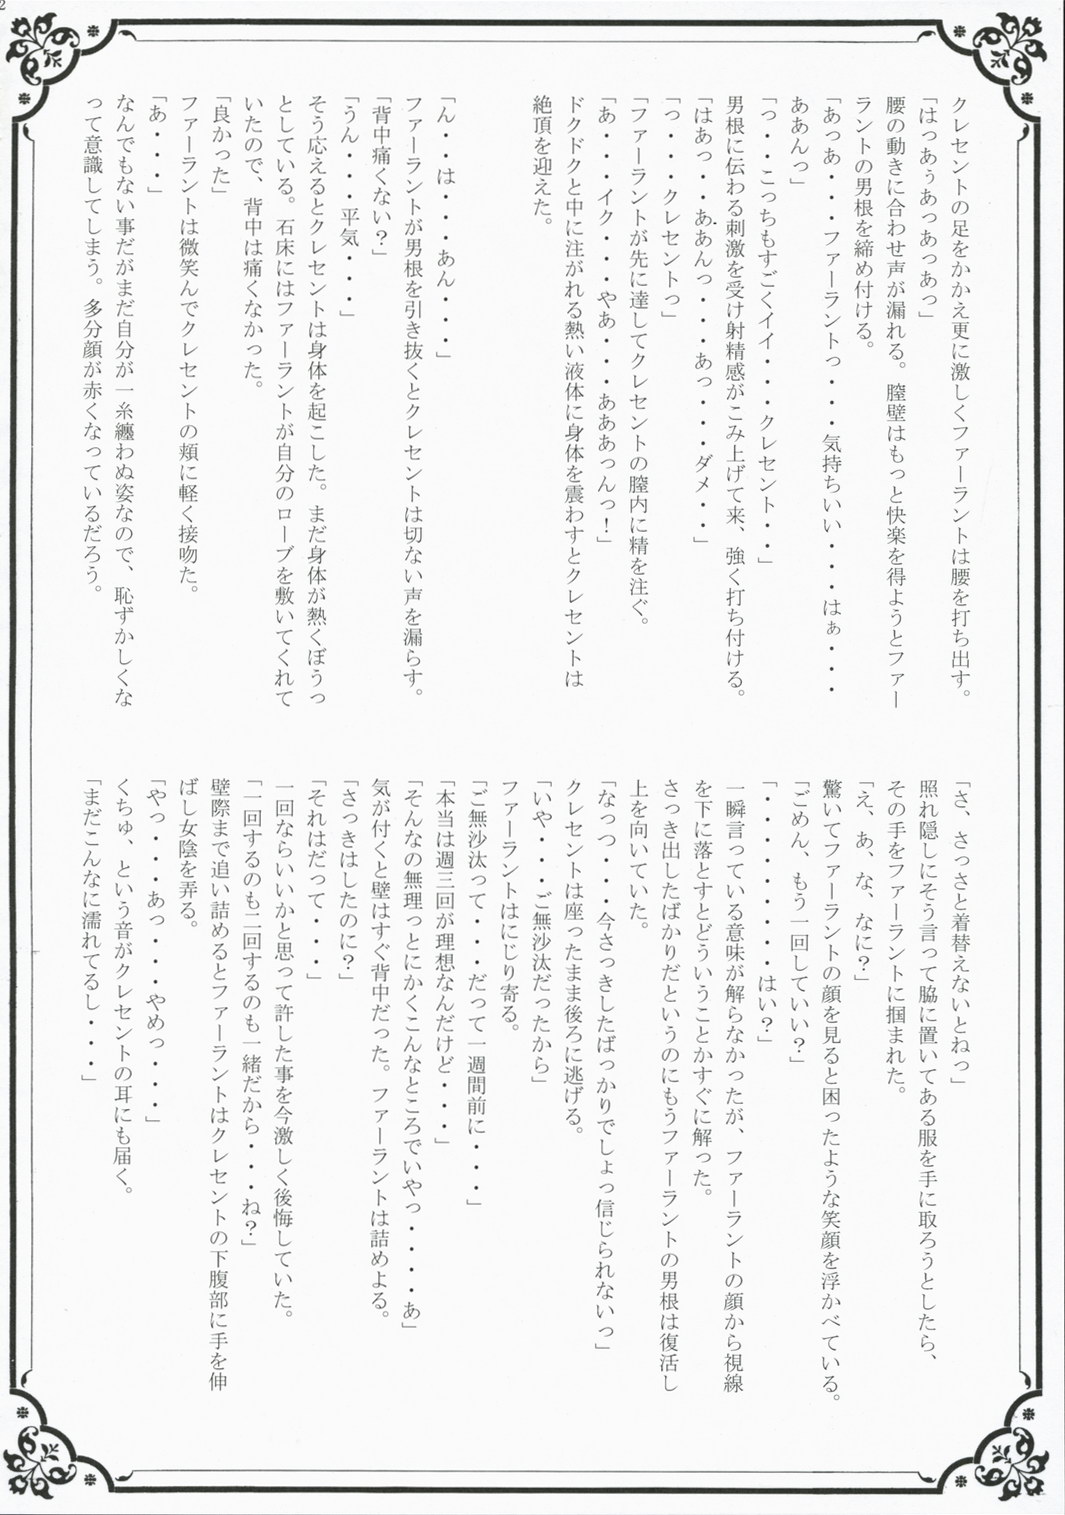 2
クレセントの足をかかえ更に激しくファーラントは腰を打ち出す。
「はっあぅあっあっあっ」
腰の動きに合わせ声が漏れる。膣壁はもっと快楽を得ようとファー
ラントの男根を締め付ける。
「あっあ・・・ファーラントっ・・・気持ちいい・・・はぁ・・・
ああんっ」
「っ・・こっちもすごくイイ・・・クレセント・・」
男根に伝わる刺激を受け射精感がこみ上げて来、強く打ち付ける。
「はあっ・・ああんっ・・・あっ・・・ダメ・・」
「っ・・・クレセントっ」
「ファーラントが先に達してクレセントの膣内に精を注ぐ。
「あ・・・イク・・・やあ・・・あああっんっ！」
ドクドクと中に注がれる熱い液体に身体を震わすとクレセントは
絶頂を迎えた。
「ん・・は・・・あん・・・」
ファーラントが男根を引き抜くとクレセントは切ない声を漏らす。
「背中痛くない？」
「うん・・・平気・・・」
そう応えるとクレセントは身体を起こした。まだ身体が熱くぼうっ
としている。石床にはファーラントが自分のローブを敷いてくれて
いたので、背中は痛くなかった。
「良かった」
ファーラントは微笑んでクレセントの頬に軽く接吻た。
「あ・・・」
なんでもない事だがまだ自分が一糸纏わぬ姿なので、恥ずかしくな
って意識してしまう。多分顔が赤くなっているだろう。
「さ、さっさと着替えないとねっ」
照れ隠しにそう言って脇に置いてある服を手に取ろうとしたら、
その手をファーラントに掴まれた。
「え、あ、な、なに？」
驚いてファーラントの顔を見ると困ったような笑顔を浮かべている。
「ごめん、もう一回していい？」
「・・・・・・・はい？」
一瞬言っている意味が解らなかったが、ファーラントの顔から視線
を下に落とすとどういうことかすぐに解った。
さっき出したばかりだというのにもうファーラントの男根は復活し
上を向いていた。
「なっつ・・・今さっきしたばっかりでしょっ信じられないっ」
クレセントは座ったまま後ろに逃げる。
「いや・・・ご無沙汰だったから」
ファーラントはにじり寄る。
「ご無沙汰って・・・だって一週間前に・・・」
「本当は週三回が理想なんだけど・・・」
「そんなの無理っとにかくこんなところでいやっ・・・・あ」
気が付くと壁はすぐ背中だった。ファーラントは詰めよる。
「さっきはしたのに？」
「それはだって・・・」
一回ならいいかと思って許した事を今激しく後悔していた。
「一回するのも二回するのも一緒だから・・・ね？」
壁際まで追い詰めるとファーラントはクレセントの下腹部に手を伸
ばし女陰を弄る。
「やっ・・・あっ・・・やめっ・・・」
くちゅ、という音がクレセントの耳にも届く。
「まだこんなに濡れてるし・・・」